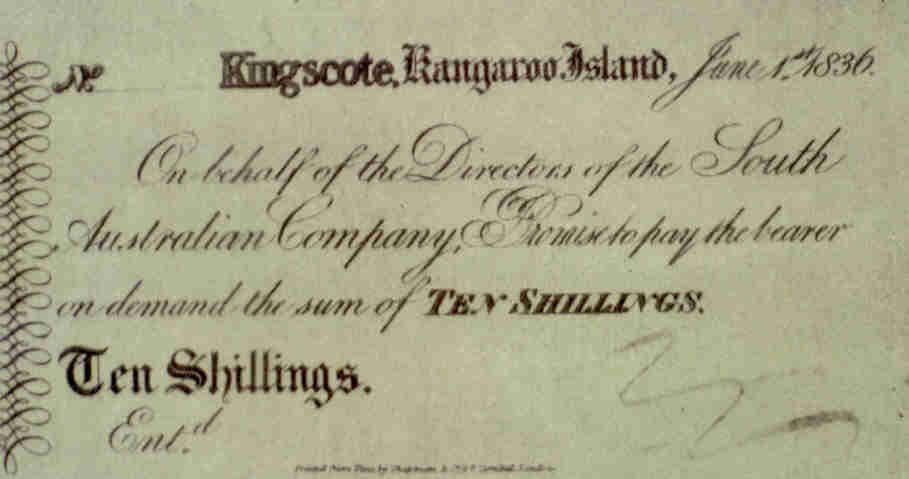 No Kingscote, Kangaroo Island, June 1st 1836.
On behalf of the Directors of the South
Australian Company, I Promise to pay the bearer
on demand the sum of TEN SHILLINGS.
Ten Shillings.
Ent.d
Printed by Chapman & Cornhill London